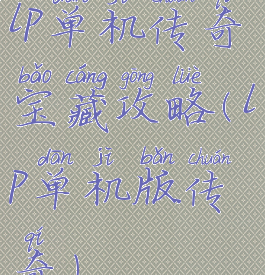 lp单机传奇
bǎo cáng gōng lüè
宝藏攻略(l
dān jī bǎn chuán
p单机版传
qí
奇)